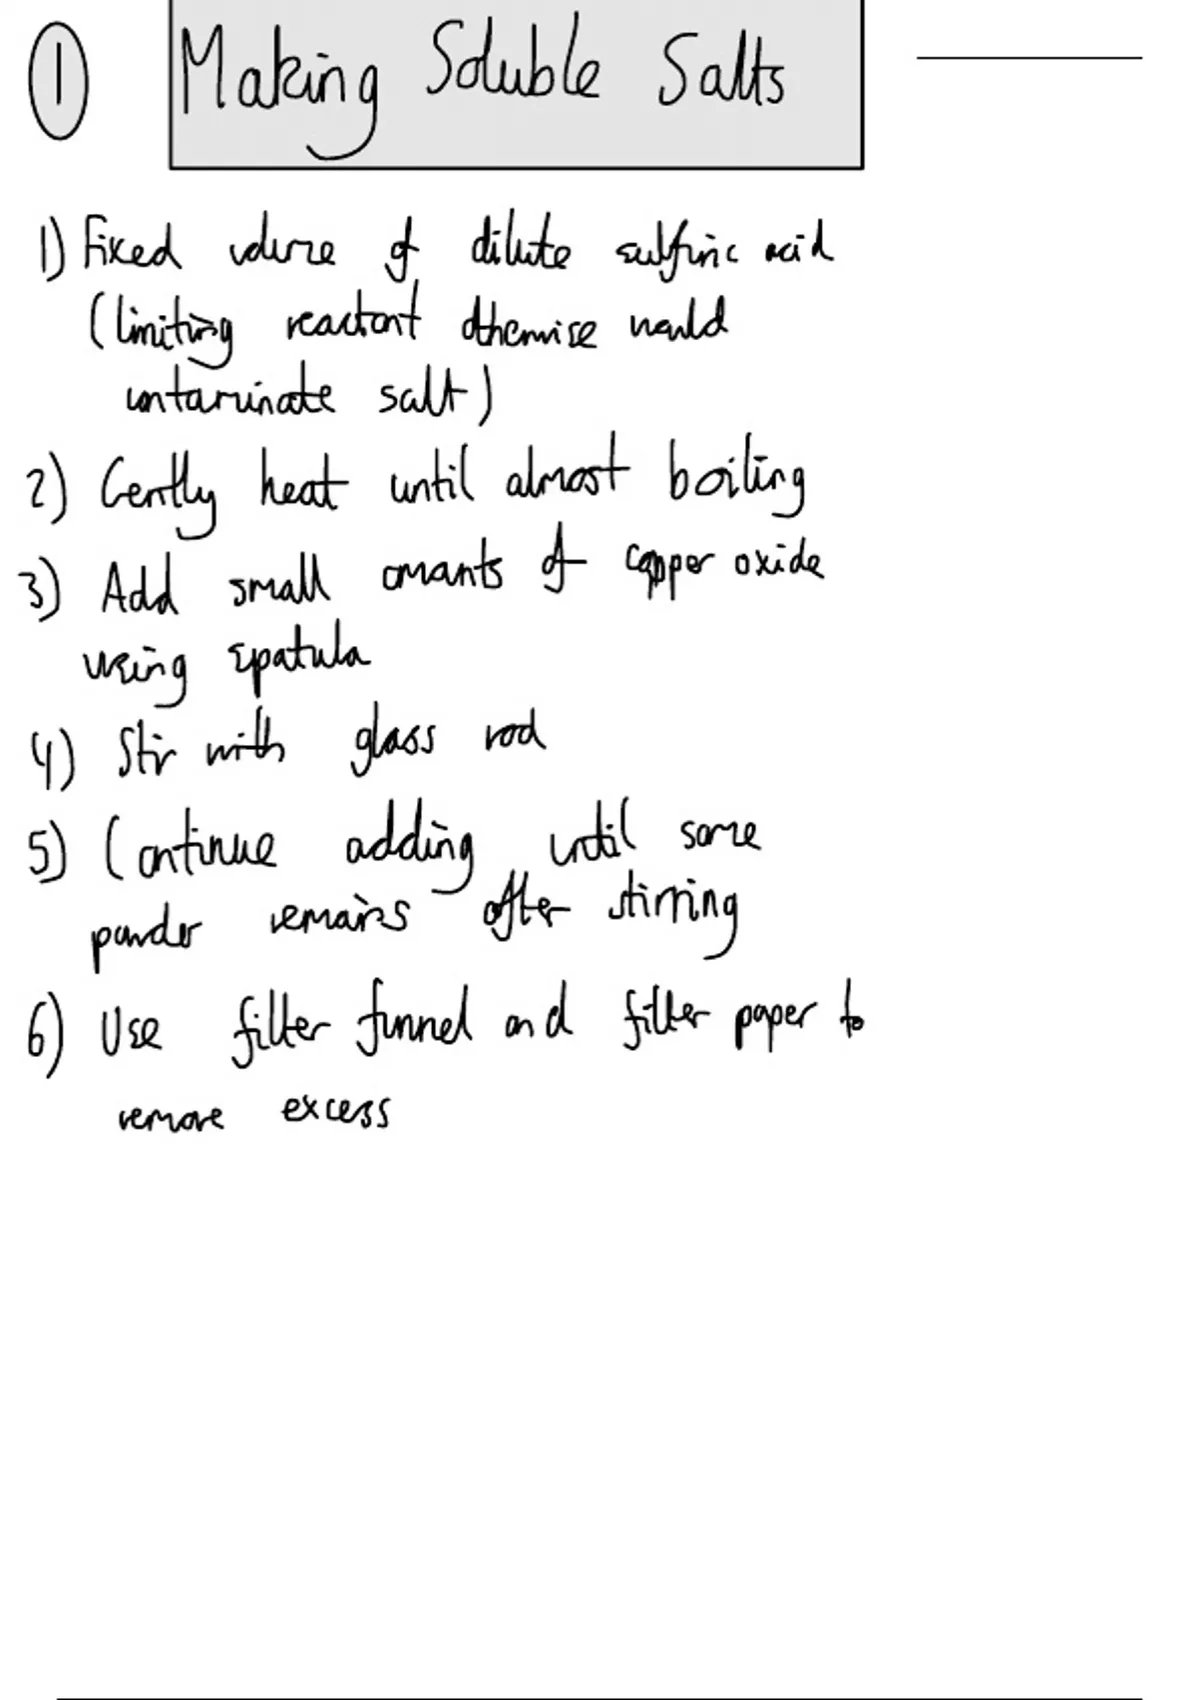 1 Making Soluble Salts
1) Fixed volume of dilute sulfuric acid
(limiting reactant otherwise would
contaminate salt)
2) Gently heat until almost boiling
3) Add small amounts of copper oxide
using spatula
4) Stir with glass rod
5) Continue adding until some
powder remains after stirring
6) Use filter funnel and filter paper to
remove excess